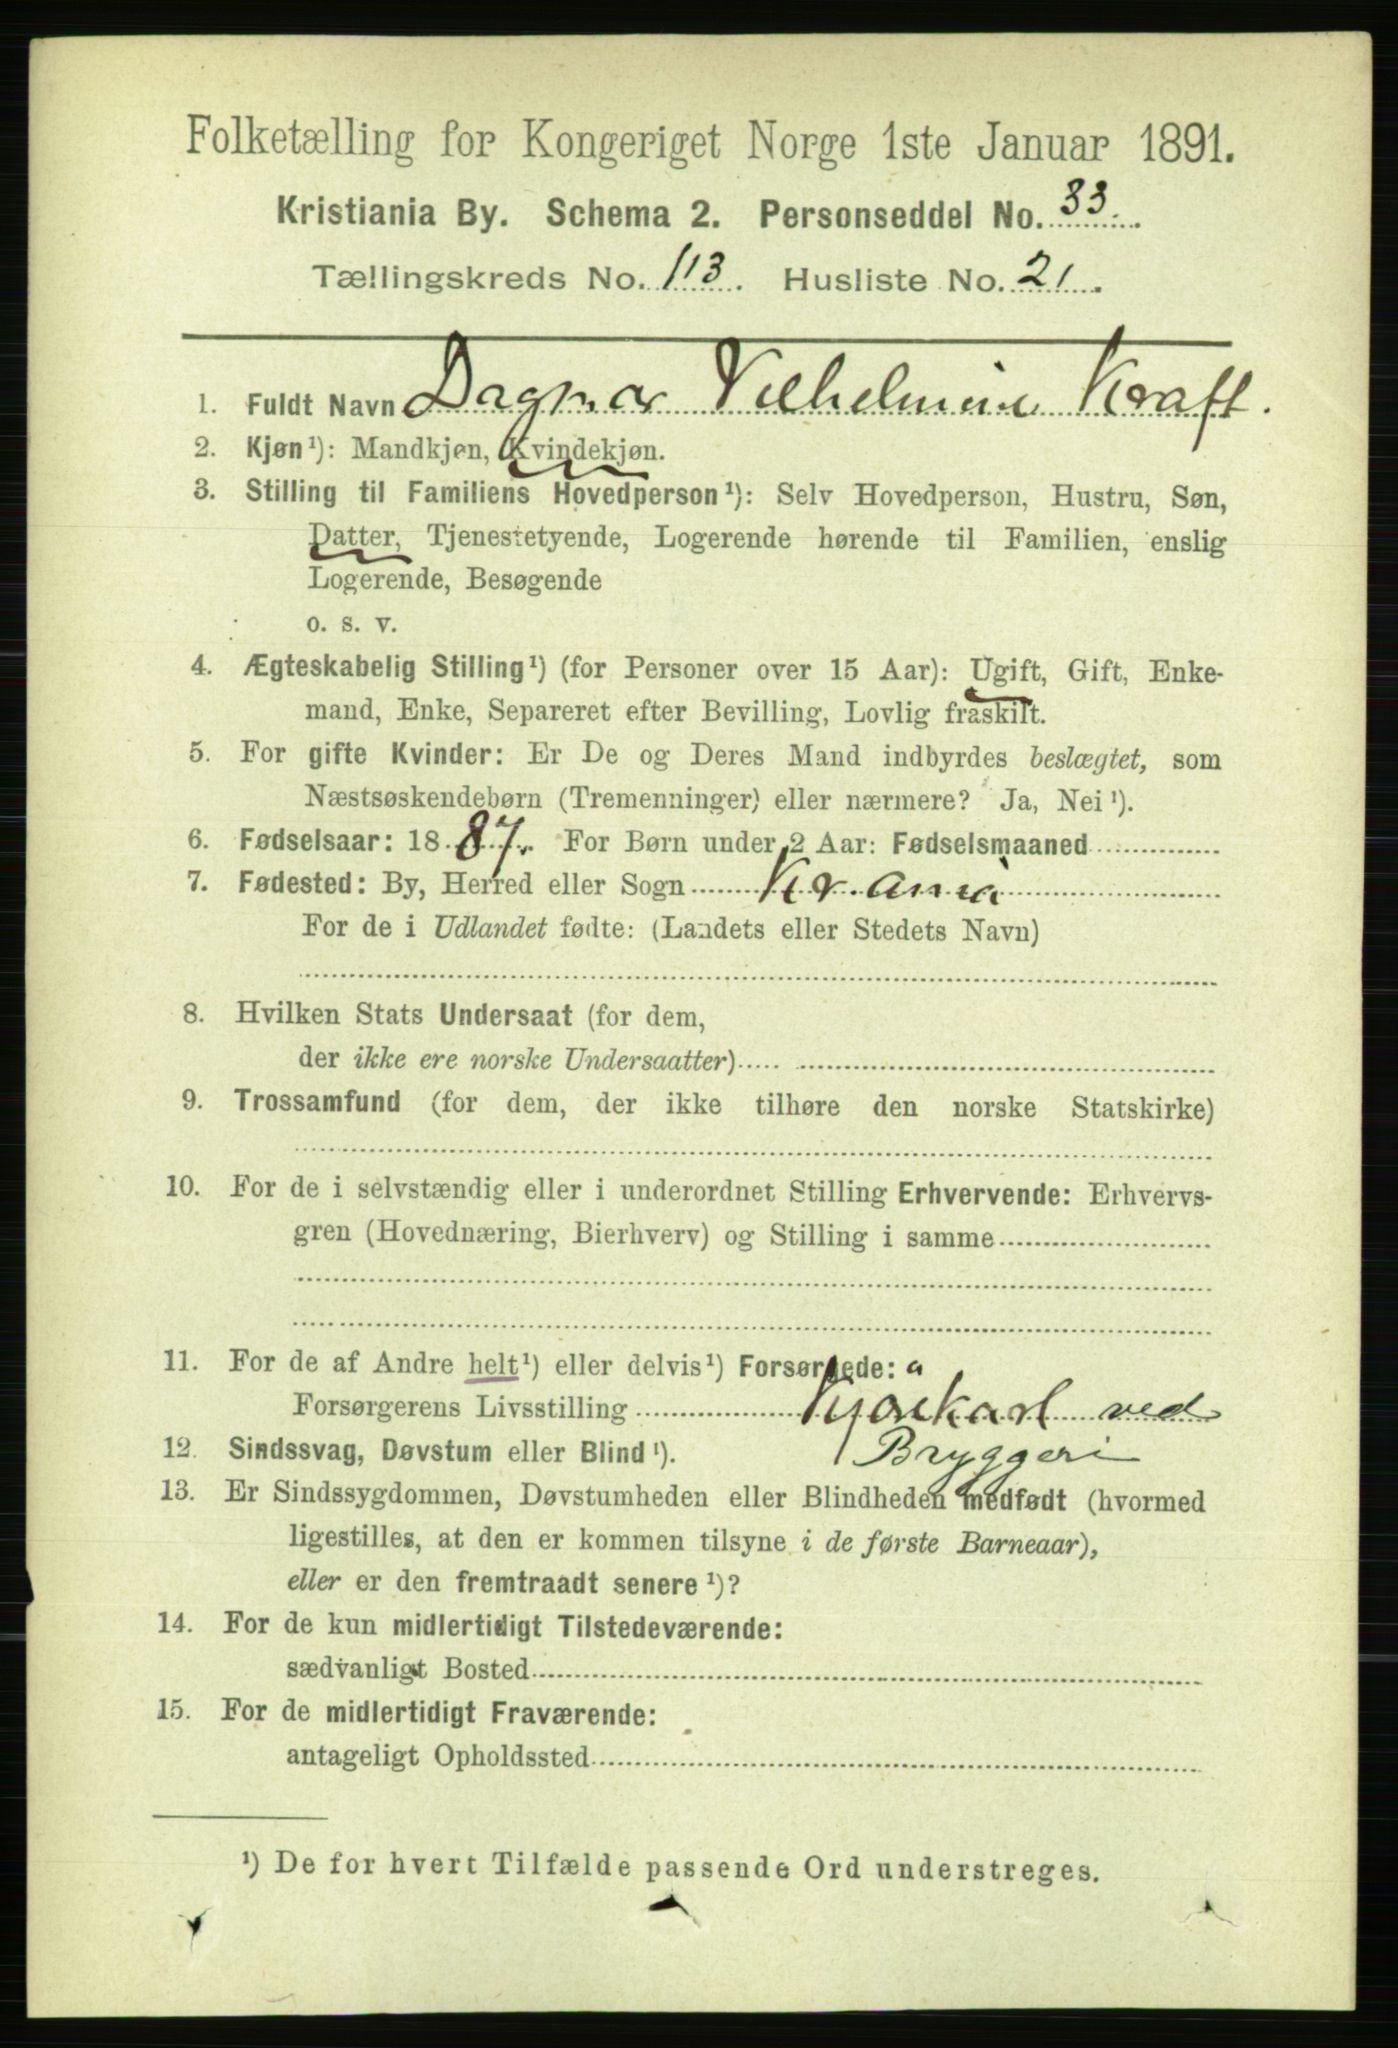 Folketælling for Kongeriget Norge 1ste Januar 1891.
Kristiania By. Schema 2. Personseddel No. 33.
Tællingskreds No. 113. Husliste No. 21.
1. Fuldt Navn Dagmar Vilhelmine Kraft.
2. Kjøn¹): Mandkjøn, Kvindekjøn.
3. Stilling til Familiens Hovedperson¹): Selv Hovedperson, Hustru, Søn,
Datter, Tjenestetyende, Logerende hørende til Familien, enslig
Logerende, Besøgende
o. s. v.
4. Ægteskabelig Stilling¹) (for Personer over 15 Aar): Ugift, Gift, Enke-
mand, Enke, Separeret efter Bevilling, Lovlig fraskilt.
5. For gifte Kvinder: Er De og Deres Mand indbyrdes beslægtet, som
Næstsøskendebørn (Tremenninger) eller nærmere? Ja, Nei¹).
6. Fødselsaar: 1887. For Børn under 2 Aar: Fødselsmaaned
7. Fødested: By, Herred eller Sogn Kr.ania
For de i Udlandet fødte: (Landets eller Stedets Navn)
8. Hvilken Stats Undersaat (for dem,
der ikke ere norske Undersaatter)
9. Trossamfund (for dem, der ikke tilhøre den norske Statskirke)
10. For de i selvstændig eller i underordnet Stilling Erhvervende: Erhvervs-
gren (Hovednæring, Bierhverv) og Stilling i samme
11. For de af Andre helt¹) eller delvis¹) Forsørgede:
Forsørgerens Livsstilling Kjørekarl ved
12. Sindssvag, Døvstum eller Blind¹). Bryggeri
13. Er Sindssygdommen, Døvstumheden eller Blindheden medfødt (hvormed
ligestilles, at den er kommen tilsyne i de første Barneaar),
eller er den fremtraadt senere¹)?
14. For de kun midlertidigt Tilstedeværende:
sædvanligt Bosted
15. For de midlertidigt Fraværende:
antageligt Opholdssted
¹) De for hvert Tilfælde passende Ord understreges.